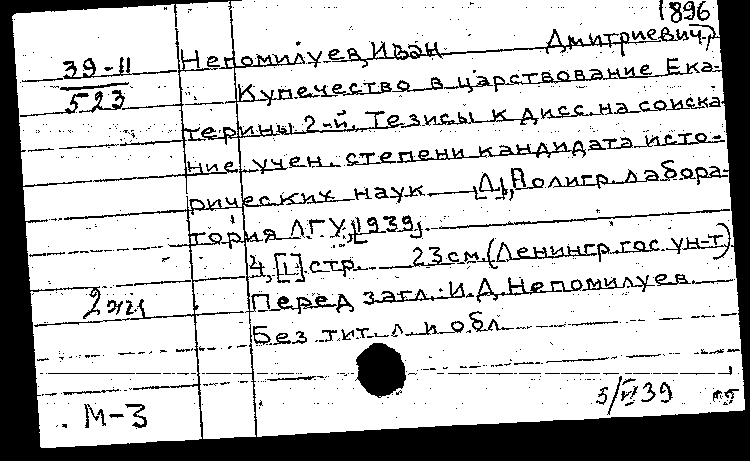 1896
39-11
523
Непомилуев, Иван Дмитриевич
Купечество в царствование Ека-
терины 2-й. Тезисы к дисс. на соиска-
ние учен. степени кандидата исто-
рических наук. [Л], Полигр. лабора-
тория ЛГУ, [1939].
4, [1] стр. 23 см. (Ленингр. гос. ун-т)
Перед загл.: И.Д. Непомилуев.
2 экз
Без тит. л. и обл.
М-3
5/VI 39